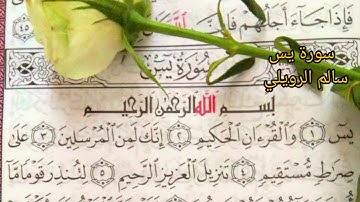 فَإِذَا جَآءَ أَجَلُهُمْ فَإِنَّ
سُورَةُ يسٓ
سورة يس
سالم الرويلي
بِسْمِ اللَّهِ الرَّحْمَٰنِ الرَّحِيمِ
يسٓ ١ وَالْقُرْءَانِ الْحَكِيمِ ٢ إِنَّكَ لَمِنَ الْمُرْسَلِينَ ٣ عَلَىٰ
صِرَٰطٍ مُّسْتَقِيمٍ ٤ تَنزِيلَ الْعَزِيزِ الرَّحِيمِ ٥ لِتُنذِرَ قَوْمًا مَّآ